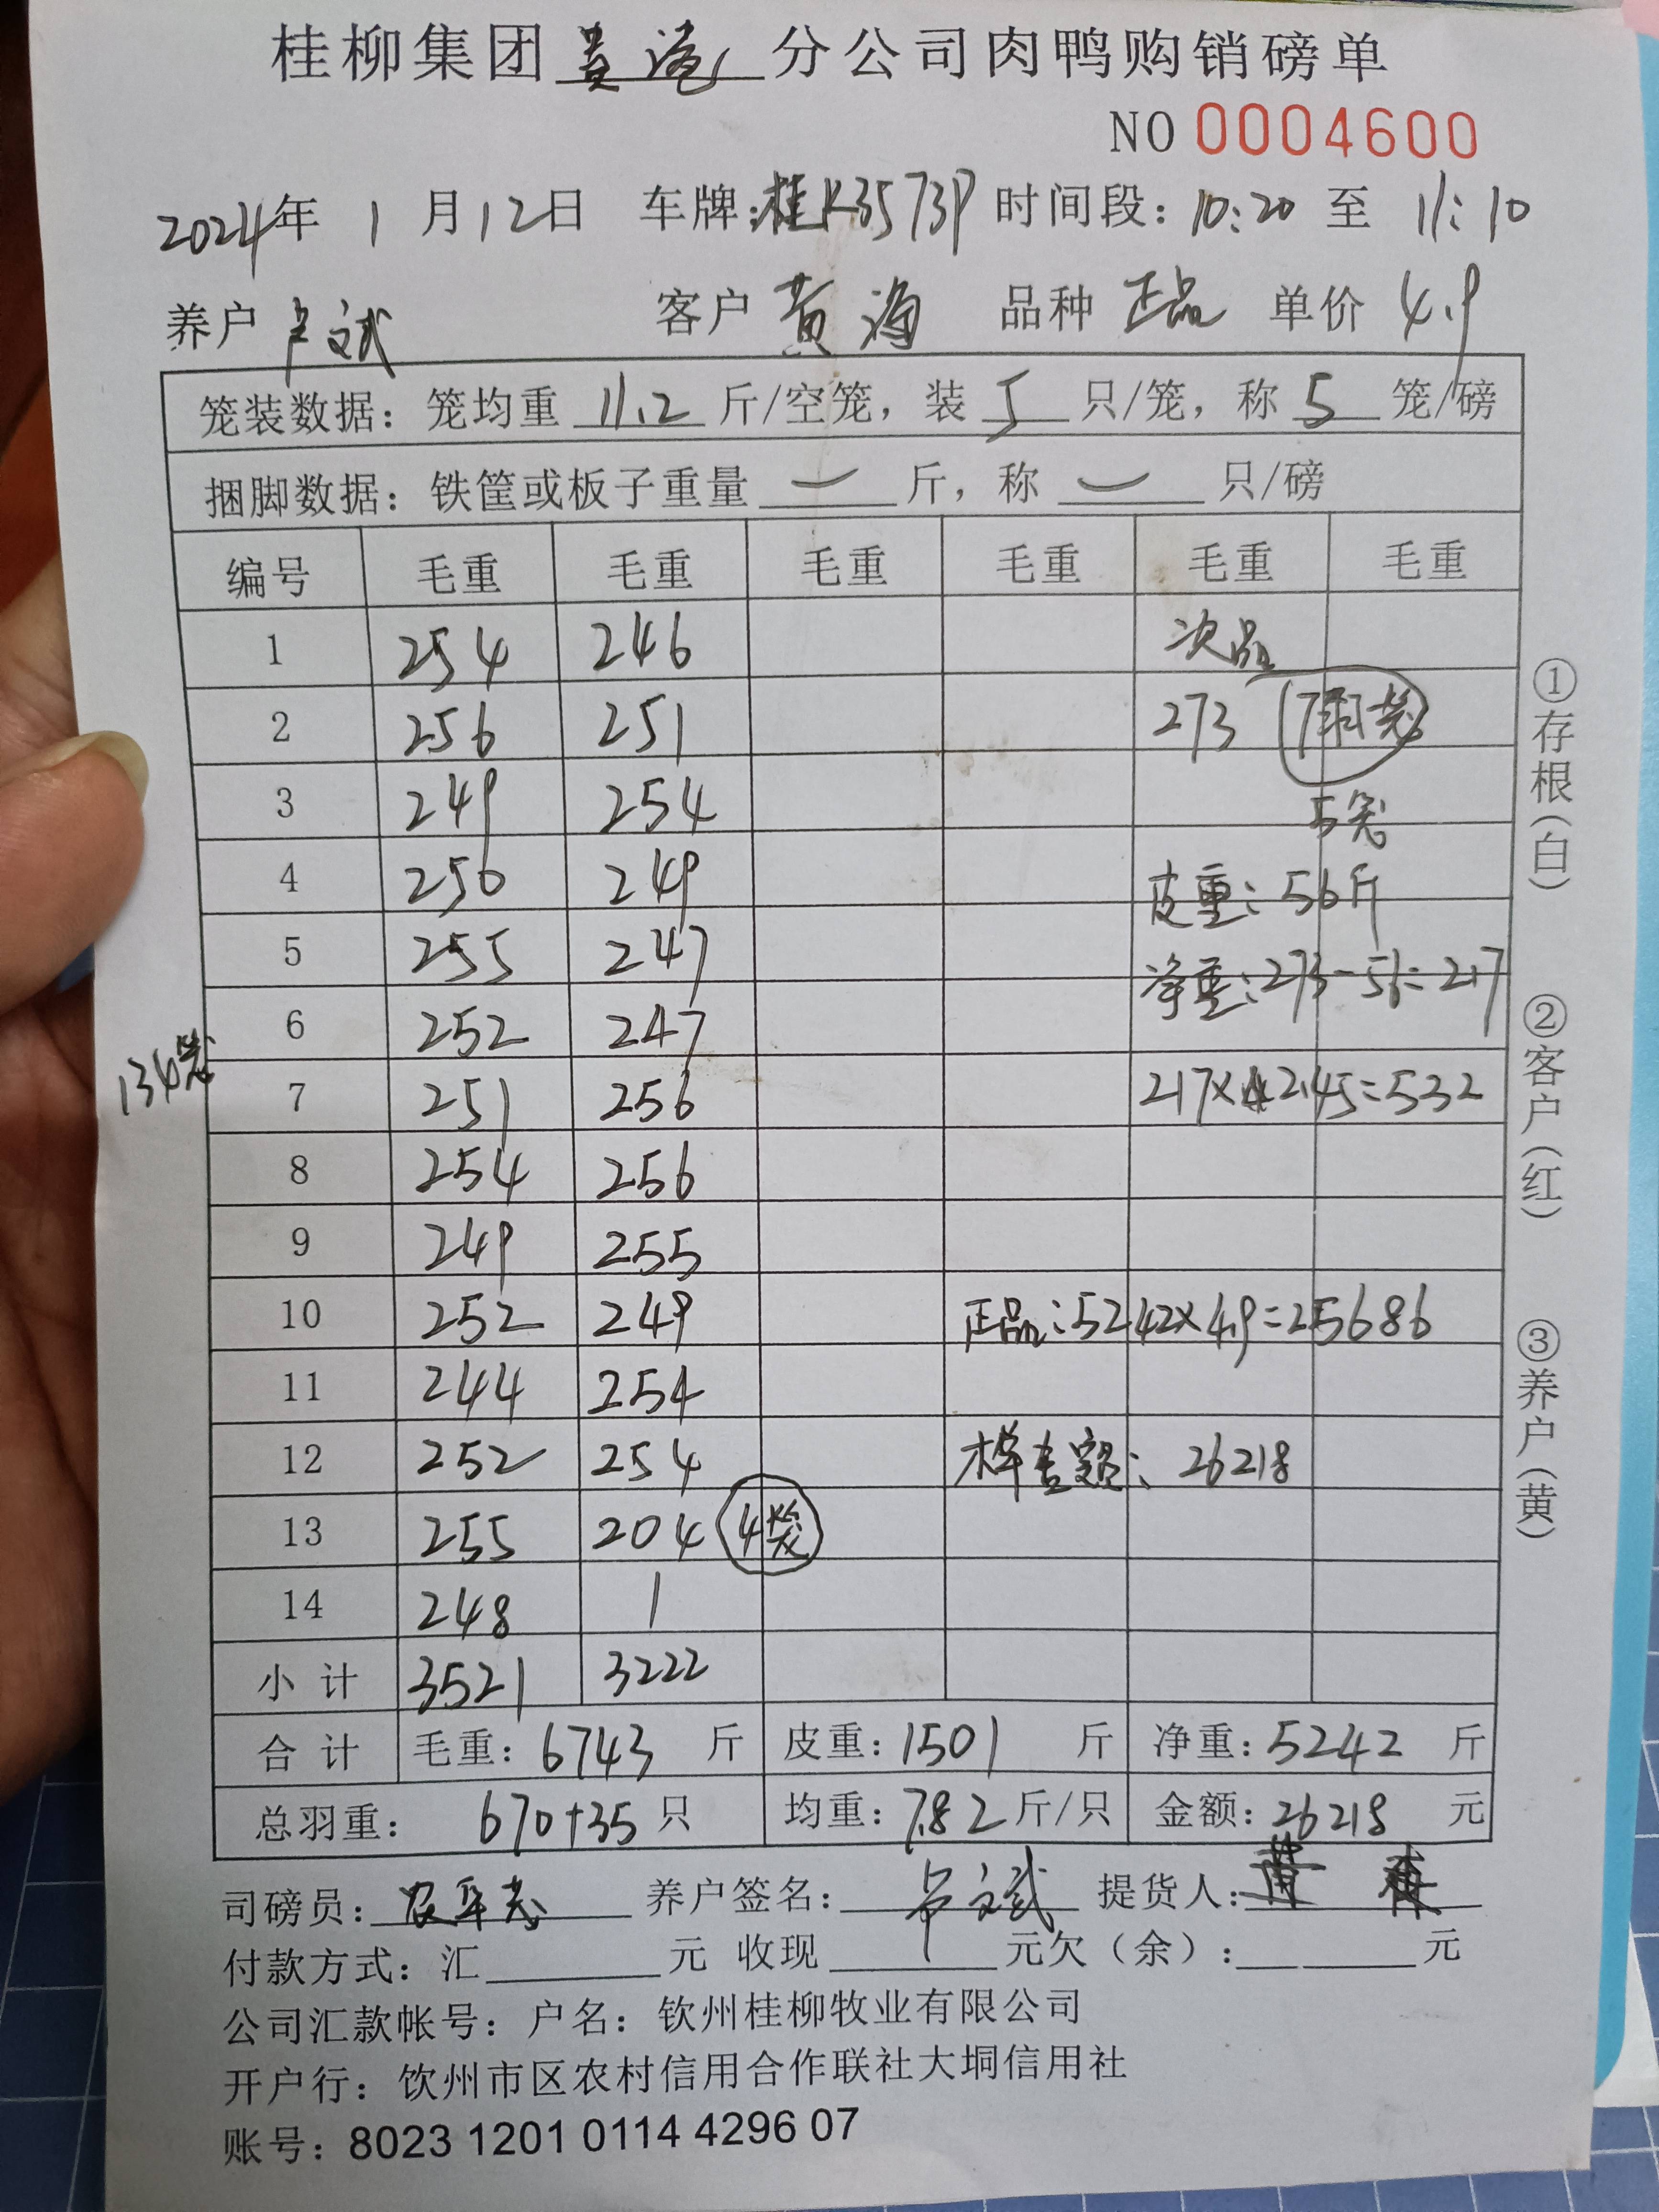 桂柳集团贵港分公司肉鸭购销磅单
NO 0004600
2024年 1 月12日 车牌:桂K3573P 时间段: 10:20 至 11:10
养户 卢文斌 客户 黄海 品种 正品 单价 4.9
笼装数据: 笼均重 11.2 斤/空笼, 装 5 只/笼, 称 5 笼/磅
捆脚数据: 铁筐或板子重量 — 斤, 称 — 只/磅
编号 毛重 毛重 毛重 毛重 毛重 毛重
1 254 246 次品
2 256 251 273
3 249 254 5笼
4 250 249 皮重: 56斤
5 255 247 净重: 273-56=217
6 252 247
134笼
7 251 256 217×2.45=532
8 254 256
9 249 255
10 252 249 正品: 5242×4.9=25686
11 244 254
12 252 254 26218
13 255 204 4笼
14 248 /
小计 3521 3222
合计 毛重: 6743 斤 皮重: 1501 斤 净重: 5242 斤
总羽重: 670+35 只 均重: 7.82 斤/只 金额: 26218 元
司磅员: 养户签名: 卢文斌 提货人:
付款方式: 汇 元 收现 元欠(余): 元
公司汇款帐号: 户名: 钦州桂柳牧业有限公司
开户行: 钦州市区农村信用合作联社大垌信用社
账号: 8023 1201 0114 4296 07
①存根(白)
②客户(红)
③养户(黄)